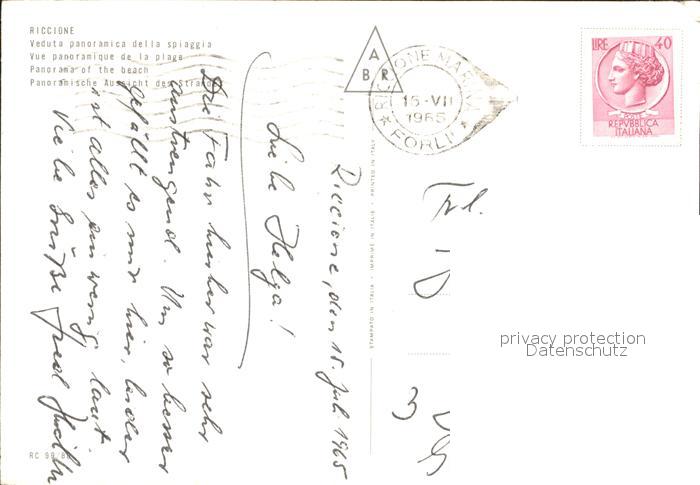 RICCIONE
Veduta panoramica della spiaggia
Vue panoramique de la plage
Panorama of the beach
Panoramische Aussicht des Strandes
A
B R
RICCIONE MARINA
15-VII
1965
* FORLI' *
LIRE 40
POSTE
REPVBBLICA
ITALIANA
Riccione, den 15. Juli 1965
Liebe Helga!
Die Fahrt hierher war sehr
anstrengend. Um so besser
gefällt es mir hier, leider
ist alles ein wenig laut
Viele Grüße
Frl.
D
3
STAMPATO IN ITALIA - IMPRIMÉ EN ITALIE - PRINTED IN ITALY
privacy protection
Datenschutz
RC 99/80